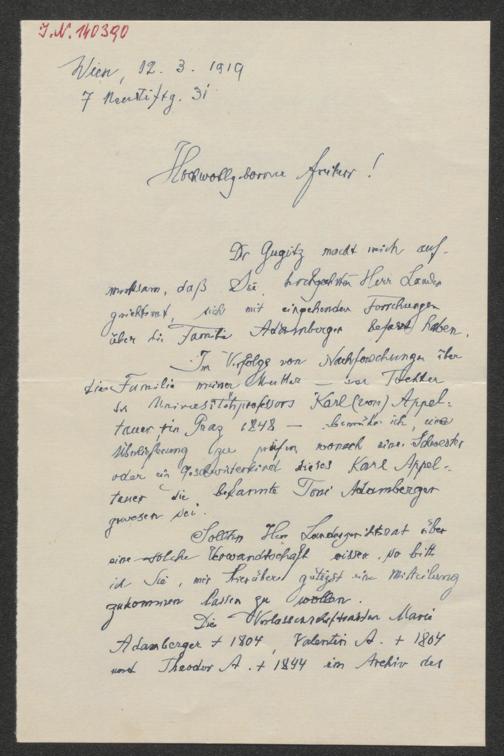 J.N. 140390
Wien, 12. 3. 1919
7 Neustiftg. 31
Hochwohlgeborner Freiherr!
Dr Gugitz macht mich auf-
merksam, daß Sie, hochgeehrter Herr Landes-
gerichtsrat, sich mit eingehenden Forschungen
über die Familie Adamberger befasst haben.
Im Verfolge von Nachforschungen über
die Familie meiner Mutter – der Tochter
des Universitätsprofessors Karl (von) Appel-
tauer, in Prag 1848 – bemühe ich, eine
Überlieferung zu prüfen, wonach eine Schwester
oder ein Geschwisterkind dieses Karl Appel-
tauer die bekannte Toni Adamberger
gewesen sei.
Sollten Herr Landesgerichtsrat über
eine solche Verwandtschaft wissen, so bitte
ich Sie, mir hierüber gütigst eine Mitteilung
zukommen lassen zu wollen.
Die Verlassenschaftsakten Marie
Adamberger + 1804, Valentin A. + 1804
und Theodor A. + 1844 im Archiv des